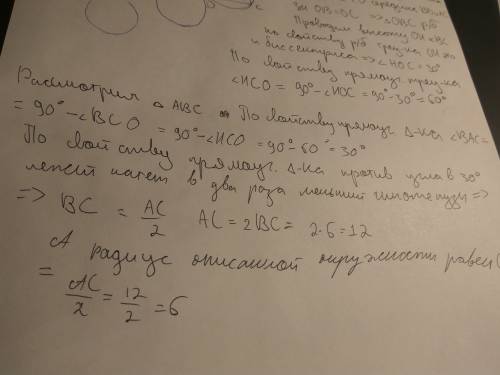 середина
за OB=OC => △OBC р/б
Проводим высоту OH к BC
по свойству р/б треуг-ка OH это
и биссектриса => ∠HOC = 30°
По свойству прямоуг. треуг-ка
∠HCO = 90° - ∠HOC = 90° - 30° = 60°
Рассмотрим △ ABC По свойству прямоуг. Δ-ка ∠BAC =
= 90° - ∠BCO = 90° - ∠HCO = 90° - 60° = 30°
По свойству прямоуг. Δ-ка против угла в 30°
лежит катет в два раза меньший гипотенузы =>
=> BC = AC/2 AC = 2BC = 2·6 = 12
А радиус описанной окружности равен
= AC/2 = 12/2 = 6